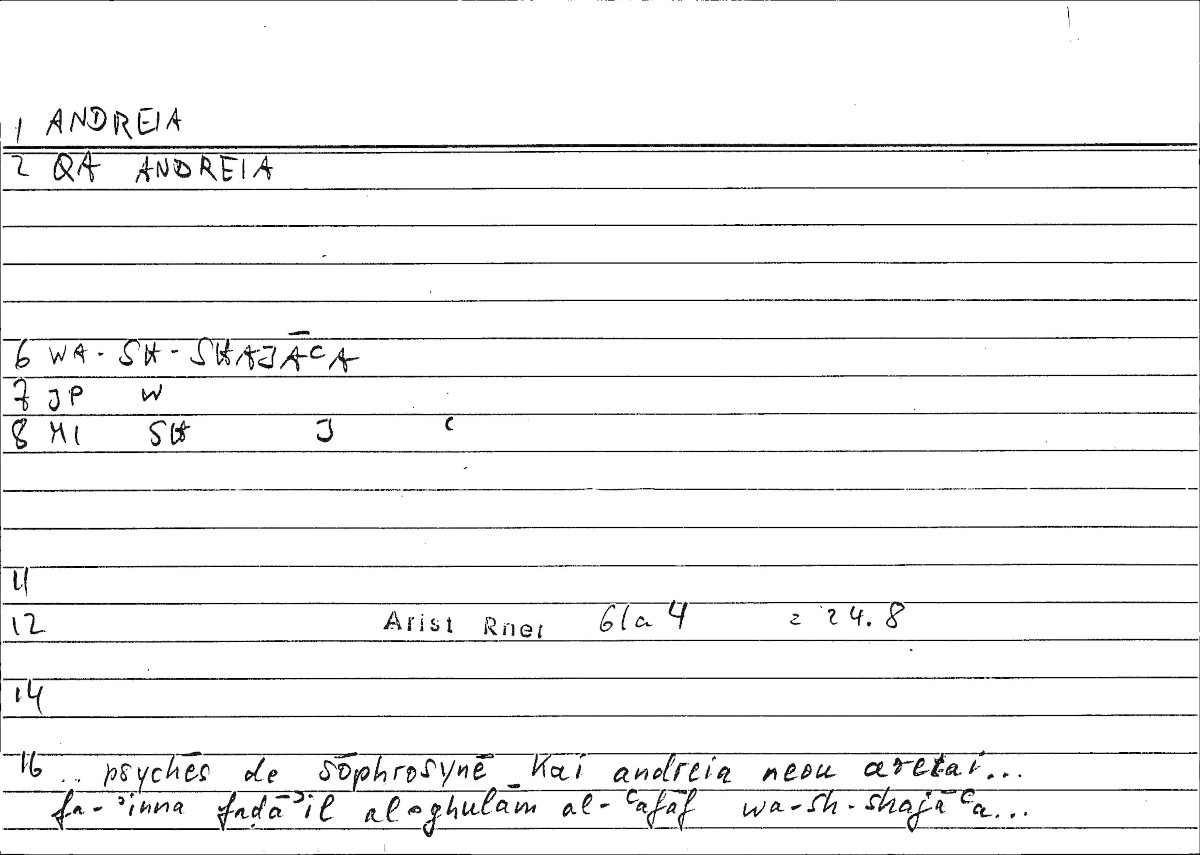 1 ANDREIA
2 QA ANDREIA
6 WA-SH-SHAJĀʿA
7 JP W
8 MI SH J ʿ
11
12 Arist Rhet 61a4 = 24.8
14
16 .. psychēs de sōphrosynē kai andreia neou aretai...
fa-ʾinna faḍāʾil al-ghulām al-ʿafāf wa-sh-shajāʿa...